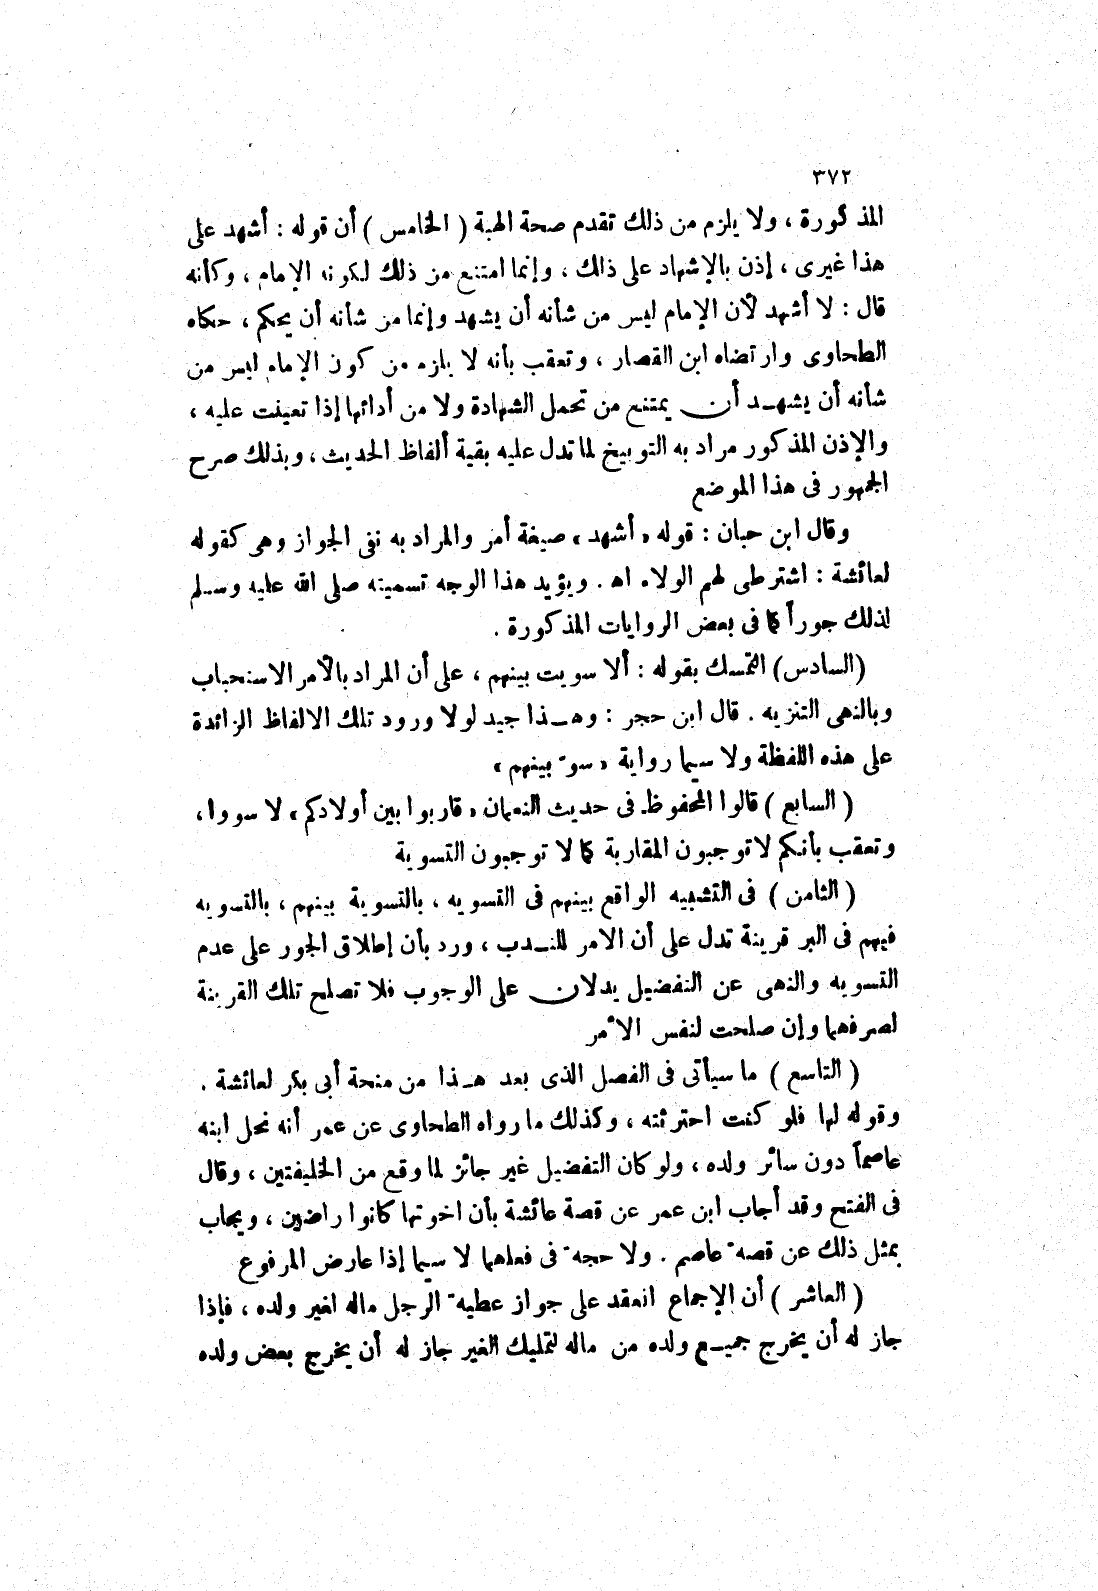 ٣٧٢
المذكورة ، ولا يلزم من ذلك تقدم صحة الهبة ( الخامس ) أن قوله : أشهد على
هذا غيرى ، إذن بالإشهاد على ذلك ، وإنما امتنع من ذلك لكونه الإمام ، وكأنه
قال : لا أشهد لأن الإمام ليس من شأنه أن يشهد وإنما من شأنه أن يحكم ، حكاه
الطحاوى وارتضاه ابن القصار ، وتعقب بأنه لا يلزم من كون الإمام ليس من
شأنه أن يشهـد أن يمتنع من تحمل الشهادة ولا من أدائها إذا تعينت عليه ،
والإذن المذكور مراد به التوبيخ لما تدل عليه بقية ألفاظ الحديث ، وبذلك صرح
الجمهور فى هذا الموضع
وقال ابن حبان : قوله « أشهد » صيغة أمر والمراد به نفى الجواز وهى كقوله
لعائشة : اشترطى لهم الولاء اه . ويؤيد هذا الوجه تسميته صلى الله عليه وسلم
لذلك جوراً كما فى بعض الروايات المذكورة .
(السادس) التمسك بقوله : ألا سويت بينهم ، على أن المراد بالأمر الاستحباب
وبالنهى التنزيه . قال ابن حجر : وهـذا جيد لولا ورود تلك الالفاظ الزائدة
على هذه اللفظة ولا سيما رواية « سو بينهم »
( السابع ) قالوا المحفوظ فى حديث النعمان « قاربوا بين أولادكم » لا سووا ،
وتعقب بأنكم لا توجبون المقاربة كما لا توجبون التسوية
( الثامن ) فى التشبيه الواقع بينهم فى التسويه ، بالتسوية بينهم ، بالتسويه
فيهم فى البر قرينة تدل على أن الامر للنـدب ، ورد بأن إطلاق الجور على عدم
التسويه والنهى عن التفضيل يدلان على الوجوب فلا تصلح تلك القرينة
لصرفهما وإن صلحت لنفس الأمر
( التاسع ) ما سيأتى فى الفصل الذى بعد هـذا من منحة أبى بكر لعائشة .
وقوله لها فلو كنت احترثته ، وكذلك ما رواه الطحاوى عن عمر أنه نحل ابنه
عاصماً دون سائر ولده ، ولو كان التفضيل غير جائز لما وقع من الخليفتين ، وقال
فى الفتح وقد أجاب ابن عمر عن قصة عائشة بأن اخوتها كانوا راضين ، ويجاب
بمثل ذلك عن قصه عاصم . ولا حجه فى فعلهما لا سيما إذا عارض المرفوع
( العاشر ) أن الإجماع انعقد على جواز عطيه الرجل ماله لغير ولده ، فإذا
جاز له أن يخرج جميـع ولده من ماله لتمليك الغير جاز له أن يخرج بعض ولده